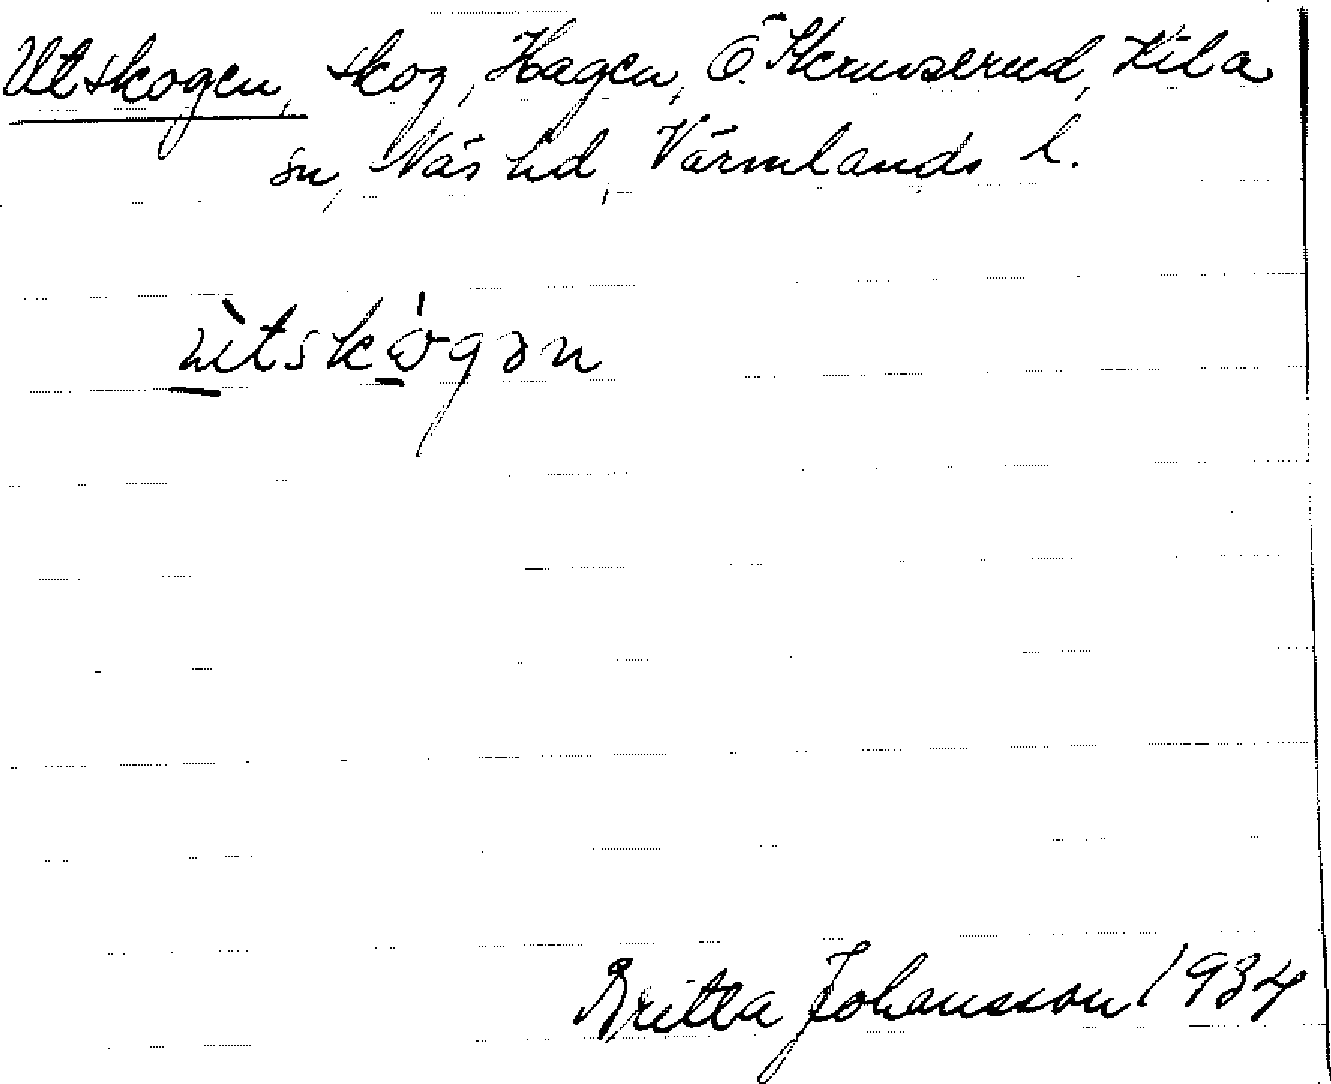 Utskogen, skog, Hagen, Ö. Skruvserud, Kila
sn, Näs hd, Värmlands l.
ùtskógən
Britta Johansson 1934